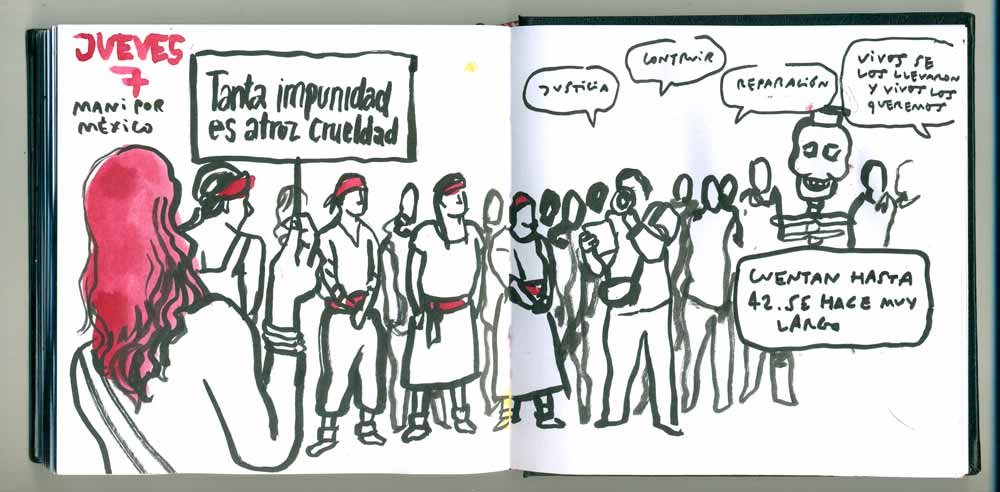 JUEVES
7
MANI POR
MÉXICO
Tanta impunidad
es atroz crueldad
JUSTICIA
CONTRUIR
REPARACIÓN
VIVOS SE
LOS LLEVARON
Y VIVOS LOS
QUEREMOS
CUENTAN HASTA
42. SE HACE MUY
LARGO